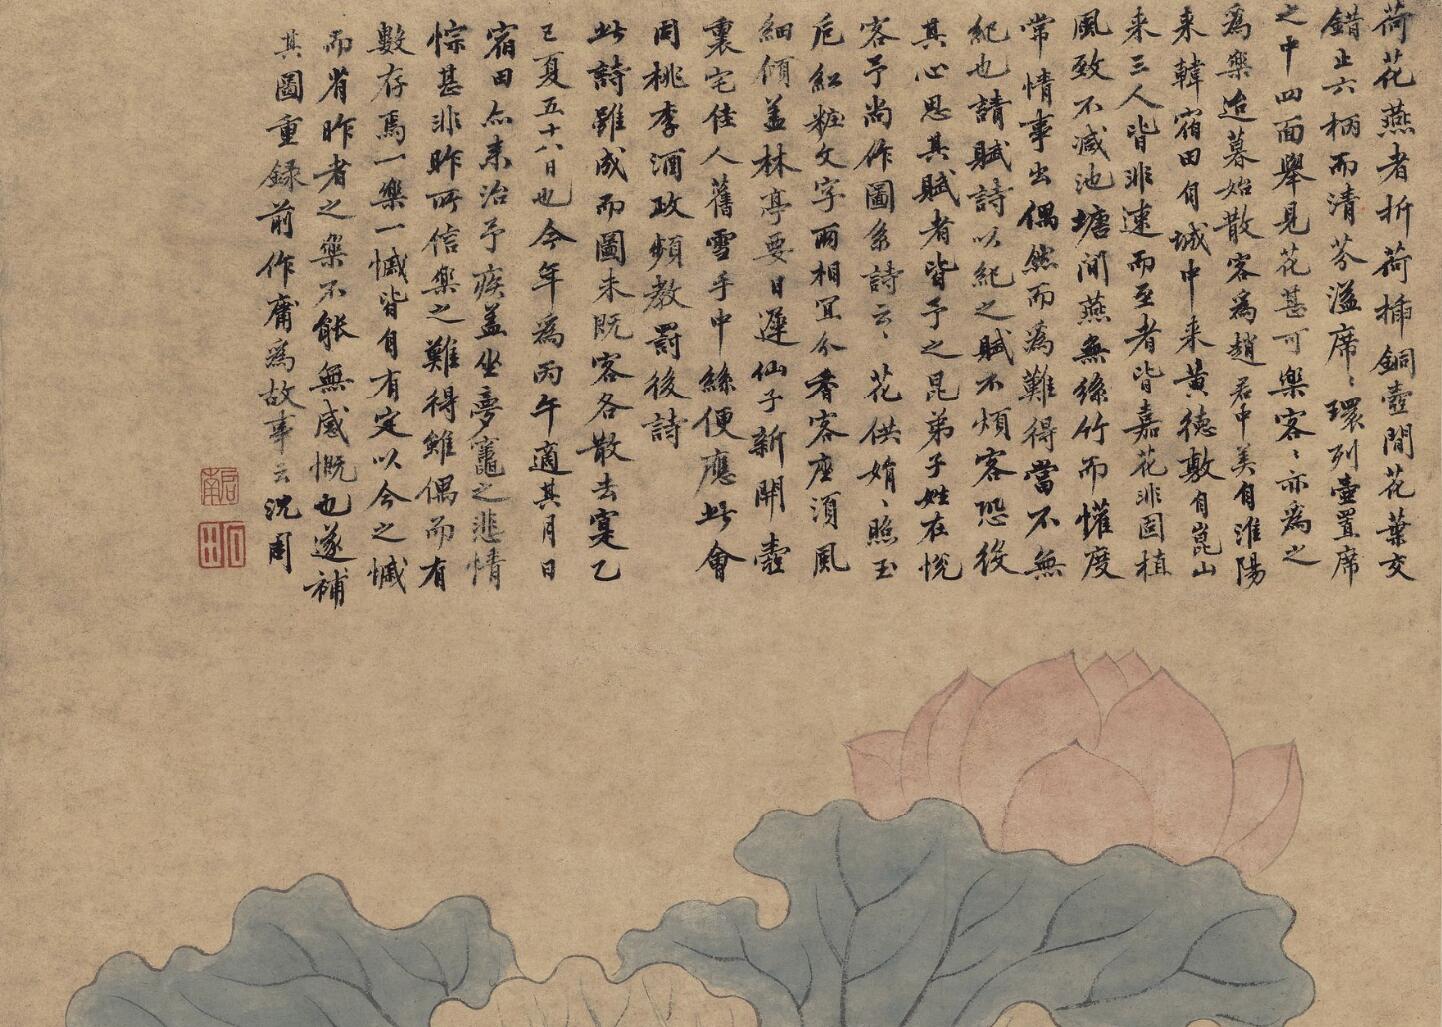 荷花燕者折荷插銅壺間花葉交
錯止六柄而清芬溢席〻環列壺置席
之中四面舉見花甚可樂客〻亦為之
為樂迨暮始散客為趙君中美自淮陽
来韓宿田自城中来黄德敷自崑山
来三人皆非速而至者皆嘉花非固植
風致不減池塘間燕無絲竹而懽度
常情事出偶然而為難得當不無
紀也請賦詩以紀之賦不煩客恐役
其心思其賦者皆予之昆弟子姓在悅
客予尚作圖系詩云〻花供娟〻照玉
卮紅粧文字兩相宜分香客座須風
細傾蓋林亭要日遲仙子新開壺
裏宅佳人舊雪手中絲便應此會
同桃李酒政頻教罰後詩
此詩雖成而圖未既客各散去寔乙
巳夏五十八日也今年為丙午適其月日
宿田亦来治予疾蓋坐夢竈之悲情
悰甚非昨所信樂之難得雖偶而有
數存焉一樂一慽皆自有定以今之慽
而省昨者之樂不能無感慨也遂補
其圖重録前作庸為故事云沈周
啟南